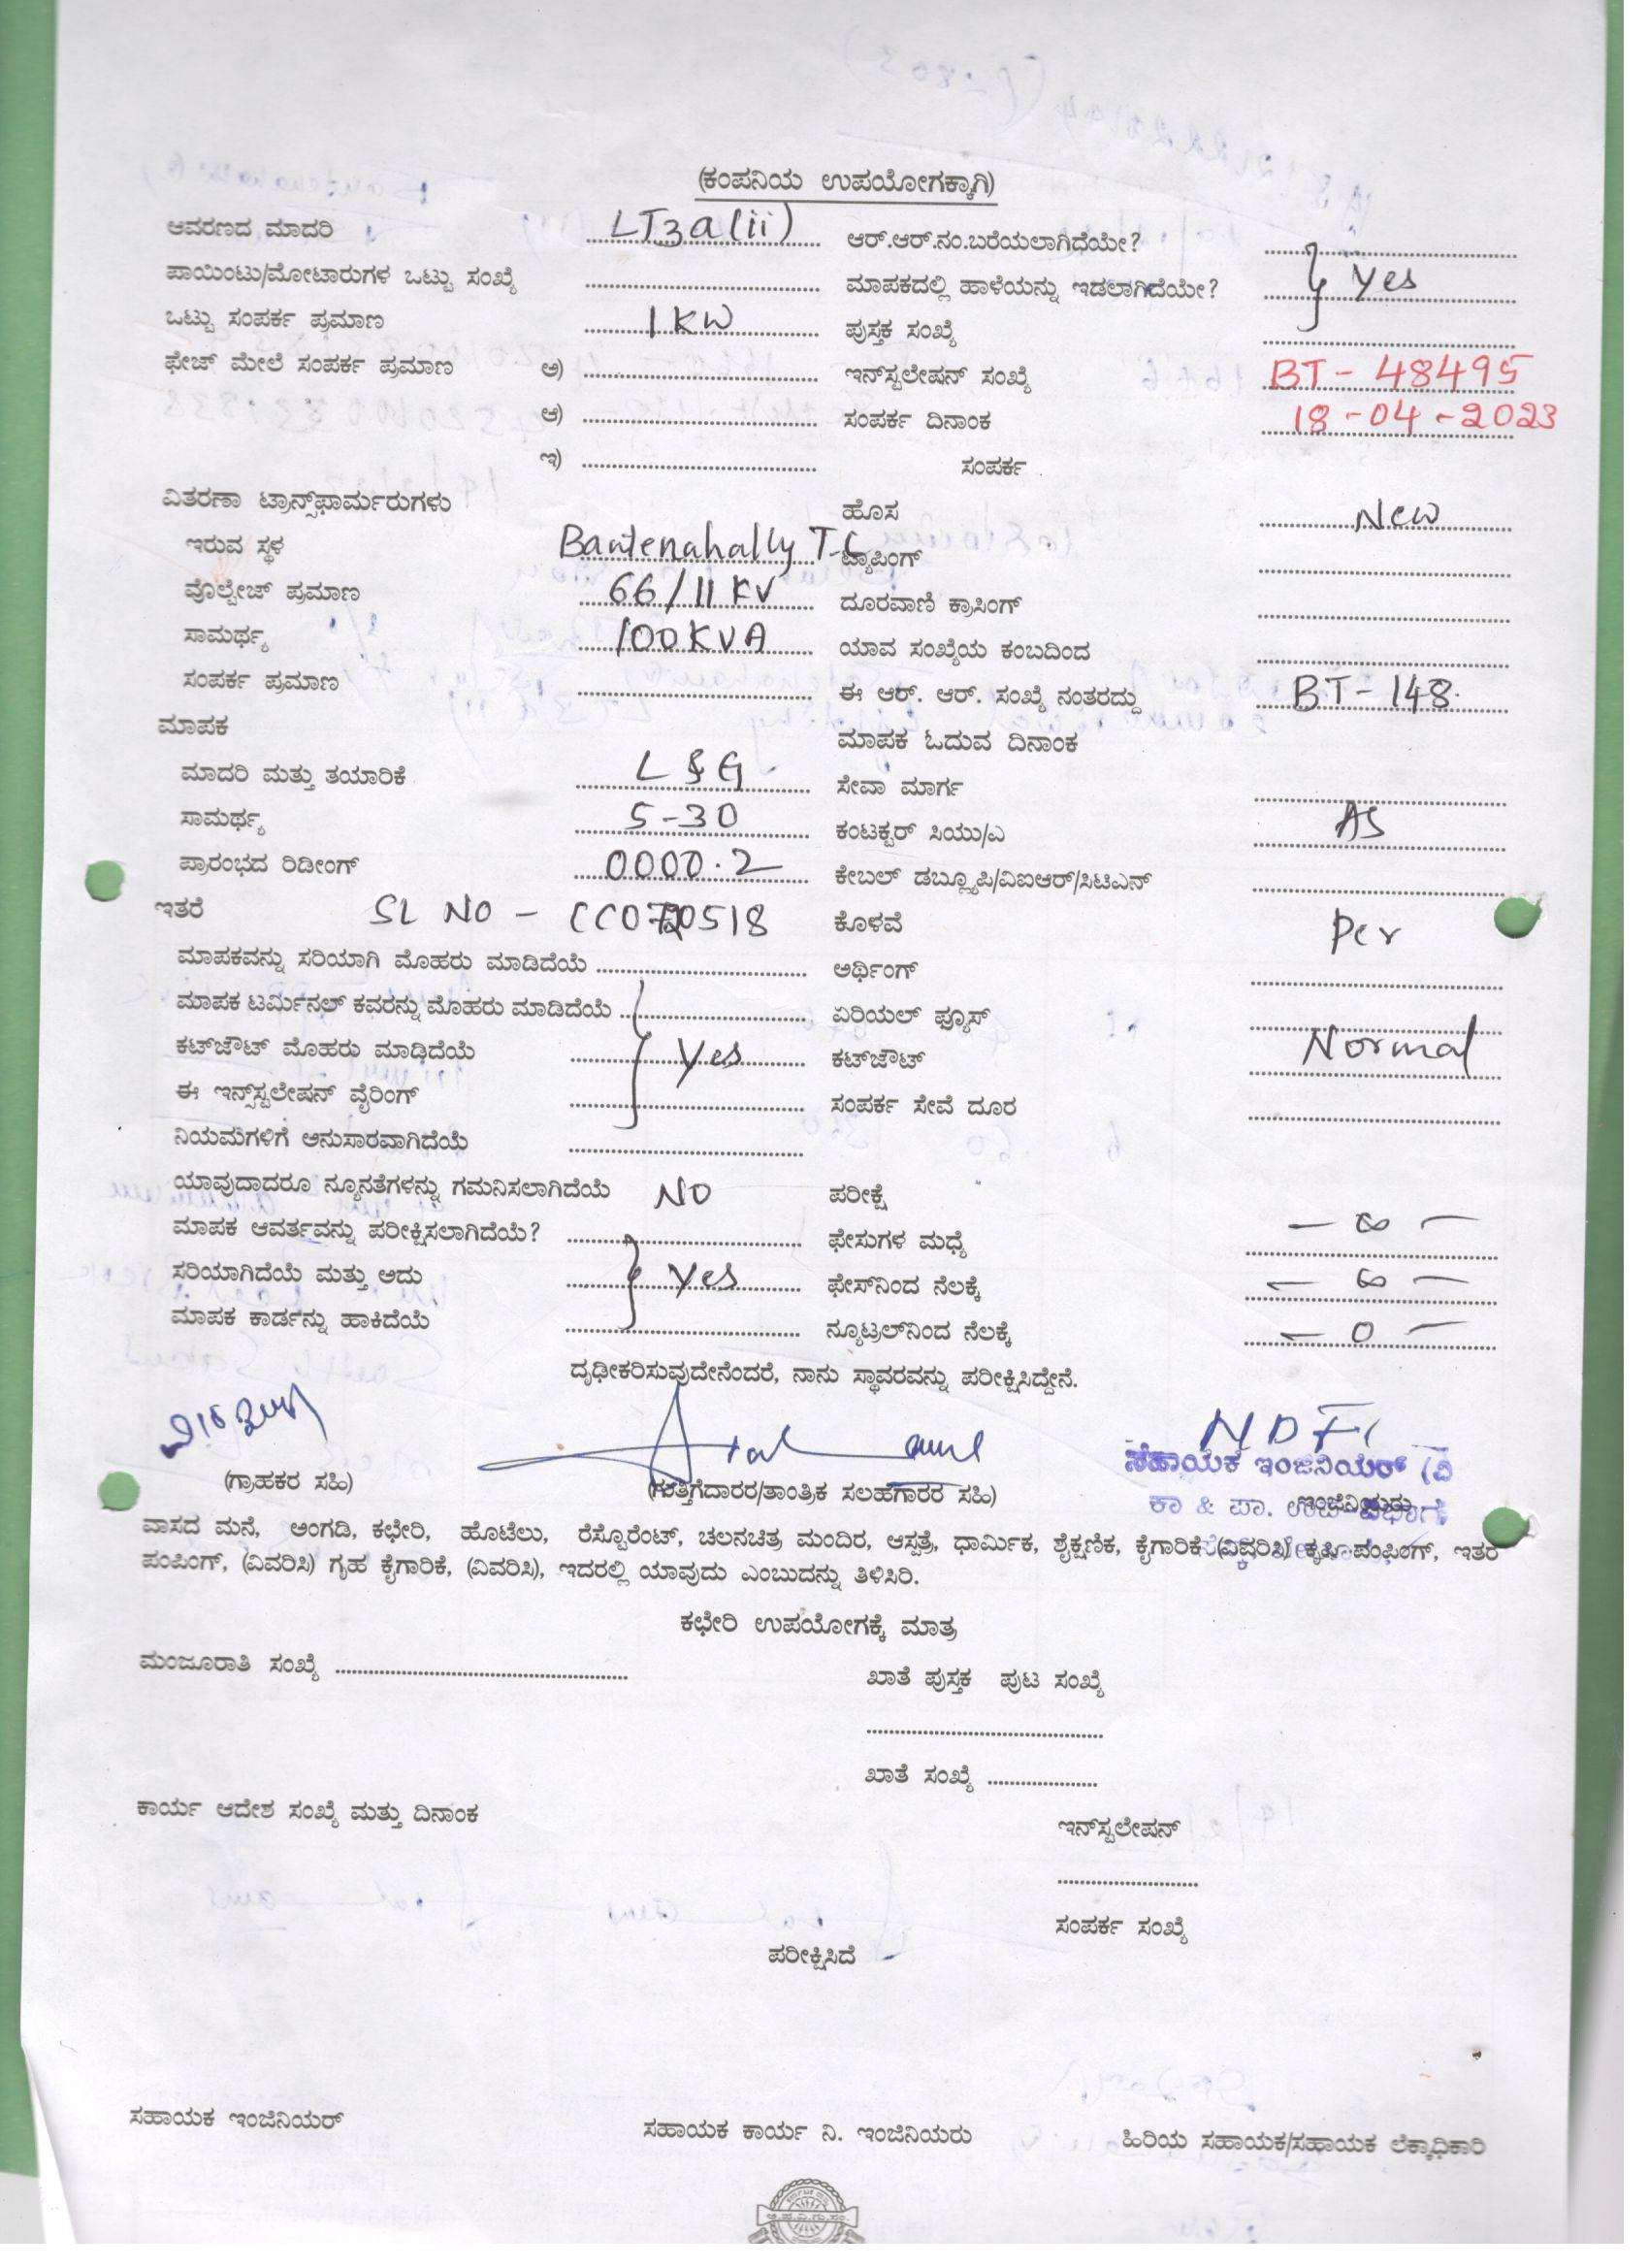 (ಕಂಪನಿಯ ಉಪಯೋಗಕ್ಕಾಗಿ)
ಆವರಣದ ಮಾದರಿ LT3a(ii) ಆರ್.ಆರ್.ನಂ.ಬರೆಯಲಾಗಿದೆಯೇ?
ಪಾಯಿಂಟು/ಮೋಟಾರುಗಳ ಒಟ್ಟು ಸಂಖ್ಯೆ ಮಾಪಕದಲ್ಲಿ ಹಾಳೆಯನ್ನು ಇಡಲಾಗಿದೆಯೇ? } Yes
ಒಟ್ಟು ಸಂಪರ್ಕ ಪ್ರಮಾಣ 1KW ಪುಸ್ತಕ ಸಂಖ್ಯೆ
ಫೇಜ್ ಮೇಲೆ ಸಂಪರ್ಕ ಪ್ರಮಾಣ ಅ) ಇನ್‌ಸ್ಟಲೇಷನ್ ಸಂಖ್ಯೆ BT-48495
ಆ) ಸಂಪರ್ಕ ದಿನಾಂಕ 18-04-2023
ಇ) ಸಂಪರ್ಕ
ವಿತರಣಾ ಟ್ರಾನ್ಸ್‌ಫಾರ್ಮರುಗಳು ಹೊಸ New
ಇರುವ ಸ್ಥಳ Bantenahally T.C ಟ್ಯಾಪಿಂಗ್
ವೊಲ್ಟೇಜ್ ಪ್ರಮಾಣ 66/11KV ದೂರವಾಣಿ ಕ್ರಾಸಿಂಗ್
ಸಾಮರ್ಥ್ಯ 100KVA ಯಾವ ಸಂಖ್ಯೆಯ ಕಂಬದಿಂದ
ಸಂಪರ್ಕ ಪ್ರಮಾಣ ಈ ಆರ್. ಆರ್. ಸಂಖ್ಯೆ ನಂತರದ್ದು BT-148.
ಮಾಪಕ ಮಾಪಕ ಓದುವ ದಿನಾಂಕ
ಮಾದರಿ ಮತ್ತು ತಯಾರಿಕೆ L&G ಸೇವಾ ಮಾರ್ಗ
ಸಾಮರ್ಥ್ಯ 5-30 ಕಂಟಕ್ಟರ್ ಸಿಯು/ಎ AS
ಪ್ರಾರಂಭದ ರಿಡೀಂಗ್ 0000.2 ಕೇಬಲ್ ಡಬ್ಲ್ಯೂಪಿ/ವಿಐಆರ್/ಸಿಟಿಎನ್
ಇತರೆ SL NO - ಕೊಳವೆ Per
ಮಾಪಕವನ್ನು ಸರಿಯಾಗಿ ಮೊಹರು ಮಾಡಿದೆಯೆ ಅರ್ಥಿಂಗ್
ಮಾಪಕ ಟರ್ಮಿನಲ್ ಕವರನ್ನು ಮೊಹರು ಮಾಡಿದೆಯೆ ಏರಿಯಲ್ ಫ್ಯೂಸ್
ಕಟ್‌ಜೌಟ್ ಮೊಹರು ಮಾಡಿದೆಯೆ } Yes ಕಟ್‌ಜೌಟ್ Normal
ಈ ಇನ್ಸ್‌ಸ್ಟಲೇಷನ್ ವೈರಿಂಗ್ ಸಂಪರ್ಕ ಸೇವೆ ದೂರ
ನಿಯಮಗಳಿಗೆ ಅನುಸಾರವಾಗಿದೆಯೆ
ಯಾವುದಾದರೂ ನ್ಯೂನತೆಗಳನ್ನು ಗಮನಿಸಲಾಗಿದೆಯೆ NO ಪರೀಕ್ಷೆ
ಮಾಪಕ ಆವರ್ತವನ್ನು ಪರೀಕ್ಷಿಸಲಾಗಿದೆಯೆ? ಫೇಸುಗಳ ಮಧ್ಯೆ - ∞ -
ಸರಿಯಾಗಿದೆಯೆ ಮತ್ತು ಅದು } Yes ಫೇಸ್‌ನಿಂದ ನೆಲಕ್ಕೆ - ∞ -
ಮಾಪಕ ಕಾರ್ಡನ್ನು ಹಾಕಿದೆಯೆ ನ್ಯೂಟ್ರಲ್‌ನಿಂದ ನೆಲಕ್ಕೆ - 0 -
ದೃಢೀಕರಿಸುವುದೇನೆಂದರೆ, ನಾನು ಸ್ಥಾವರವನ್ನು ಪರೀಕ್ಷಿಸಿದ್ದೇನೆ.
ಸಹಾಯಕ ಇಂಜಿನಿಯರ್ (ವಿ
(ಗ್ರಾಹಕರ ಸಹಿ) (ಗುತ್ತಿಗೆದಾರರ/ತಾಂತ್ರಿಕ ಸಲಹೆಗಾರರ ಸಹಿ) ಇಂಜಿನಿಯರು
ಕಾ & ಪಾ. ಉಪ ವಿಭಾಗ
ವಾಸದ ಮನೆ, ಅಂಗಡಿ, ಕಛೇರಿ, ಹೊಟೆಲು, ರೆಸ್ಟೊರೆಂಟ್, ಚಲನಚಿತ್ರ ಮಂದಿರ, ಆಸ್ಪತ್ರೆ, ಧಾರ್ಮಿಕ, ಶೈಕ್ಷಣಿಕ, ಕೈಗಾರಿಕೆ (ವಿವರಿಸಿ) ಕೃಷಿ ಪಂಪಿಂಗ್, ಇತರೆ
ಪಂಪಿಂಗ್, (ವಿವರಿಸಿ) ಗೃಹ ಕೈಗಾರಿಕೆ, (ವಿವರಿಸಿ), ಇದರಲ್ಲಿ ಯಾವುದು ಎಂಬುದನ್ನು ತಿಳಿಸಿರಿ.
ಕಛೇರಿ ಉಪಯೋಗಕ್ಕೆ ಮಾತ್ರ
ಮಂಜೂರಾತಿ ಸಂಖ್ಯೆ ಖಾತೆ ಪುಸ್ತಕ ಪುಟ ಸಂಖ್ಯೆ
ಖಾತೆ ಸಂಖ್ಯೆ
ಕಾರ್ಯ ಆದೇಶ ಸಂಖ್ಯೆ ಮತ್ತು ದಿನಾಂಕ
ಇನ್‌ಸ್ಟಲೇಷನ್
ಸಂಪರ್ಕ ಸಂಖ್ಯೆ
ಪರೀಕ್ಷಿಸಿದೆ
ಸಹಾಯಕ ಇಂಜಿನಿಯರ್ ಸಹಾಯಕ ಕಾರ್ಯ ನಿ. ಇಂಜಿನಿಯರು ಹಿರಿಯ ಸಹಾಯಕ/ಸಹಾಯಕ ಲೆಕ್ಕಾಧಿಕಾರಿ